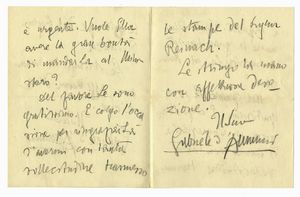 è urgente. Vuole Ella
avere la gran bontà
di mandarLa al Mini
stero?
Del favore Le sono
gratissimo. E colgo l'occa
sione per ringraziarLa
d'avermi con tanta
sollecitudine trasmesso
le stampe del signor
Reinach.
Le stringo la mano
con affettuosa devo
zione.
Il Suo
Gabriele d'Annunzio